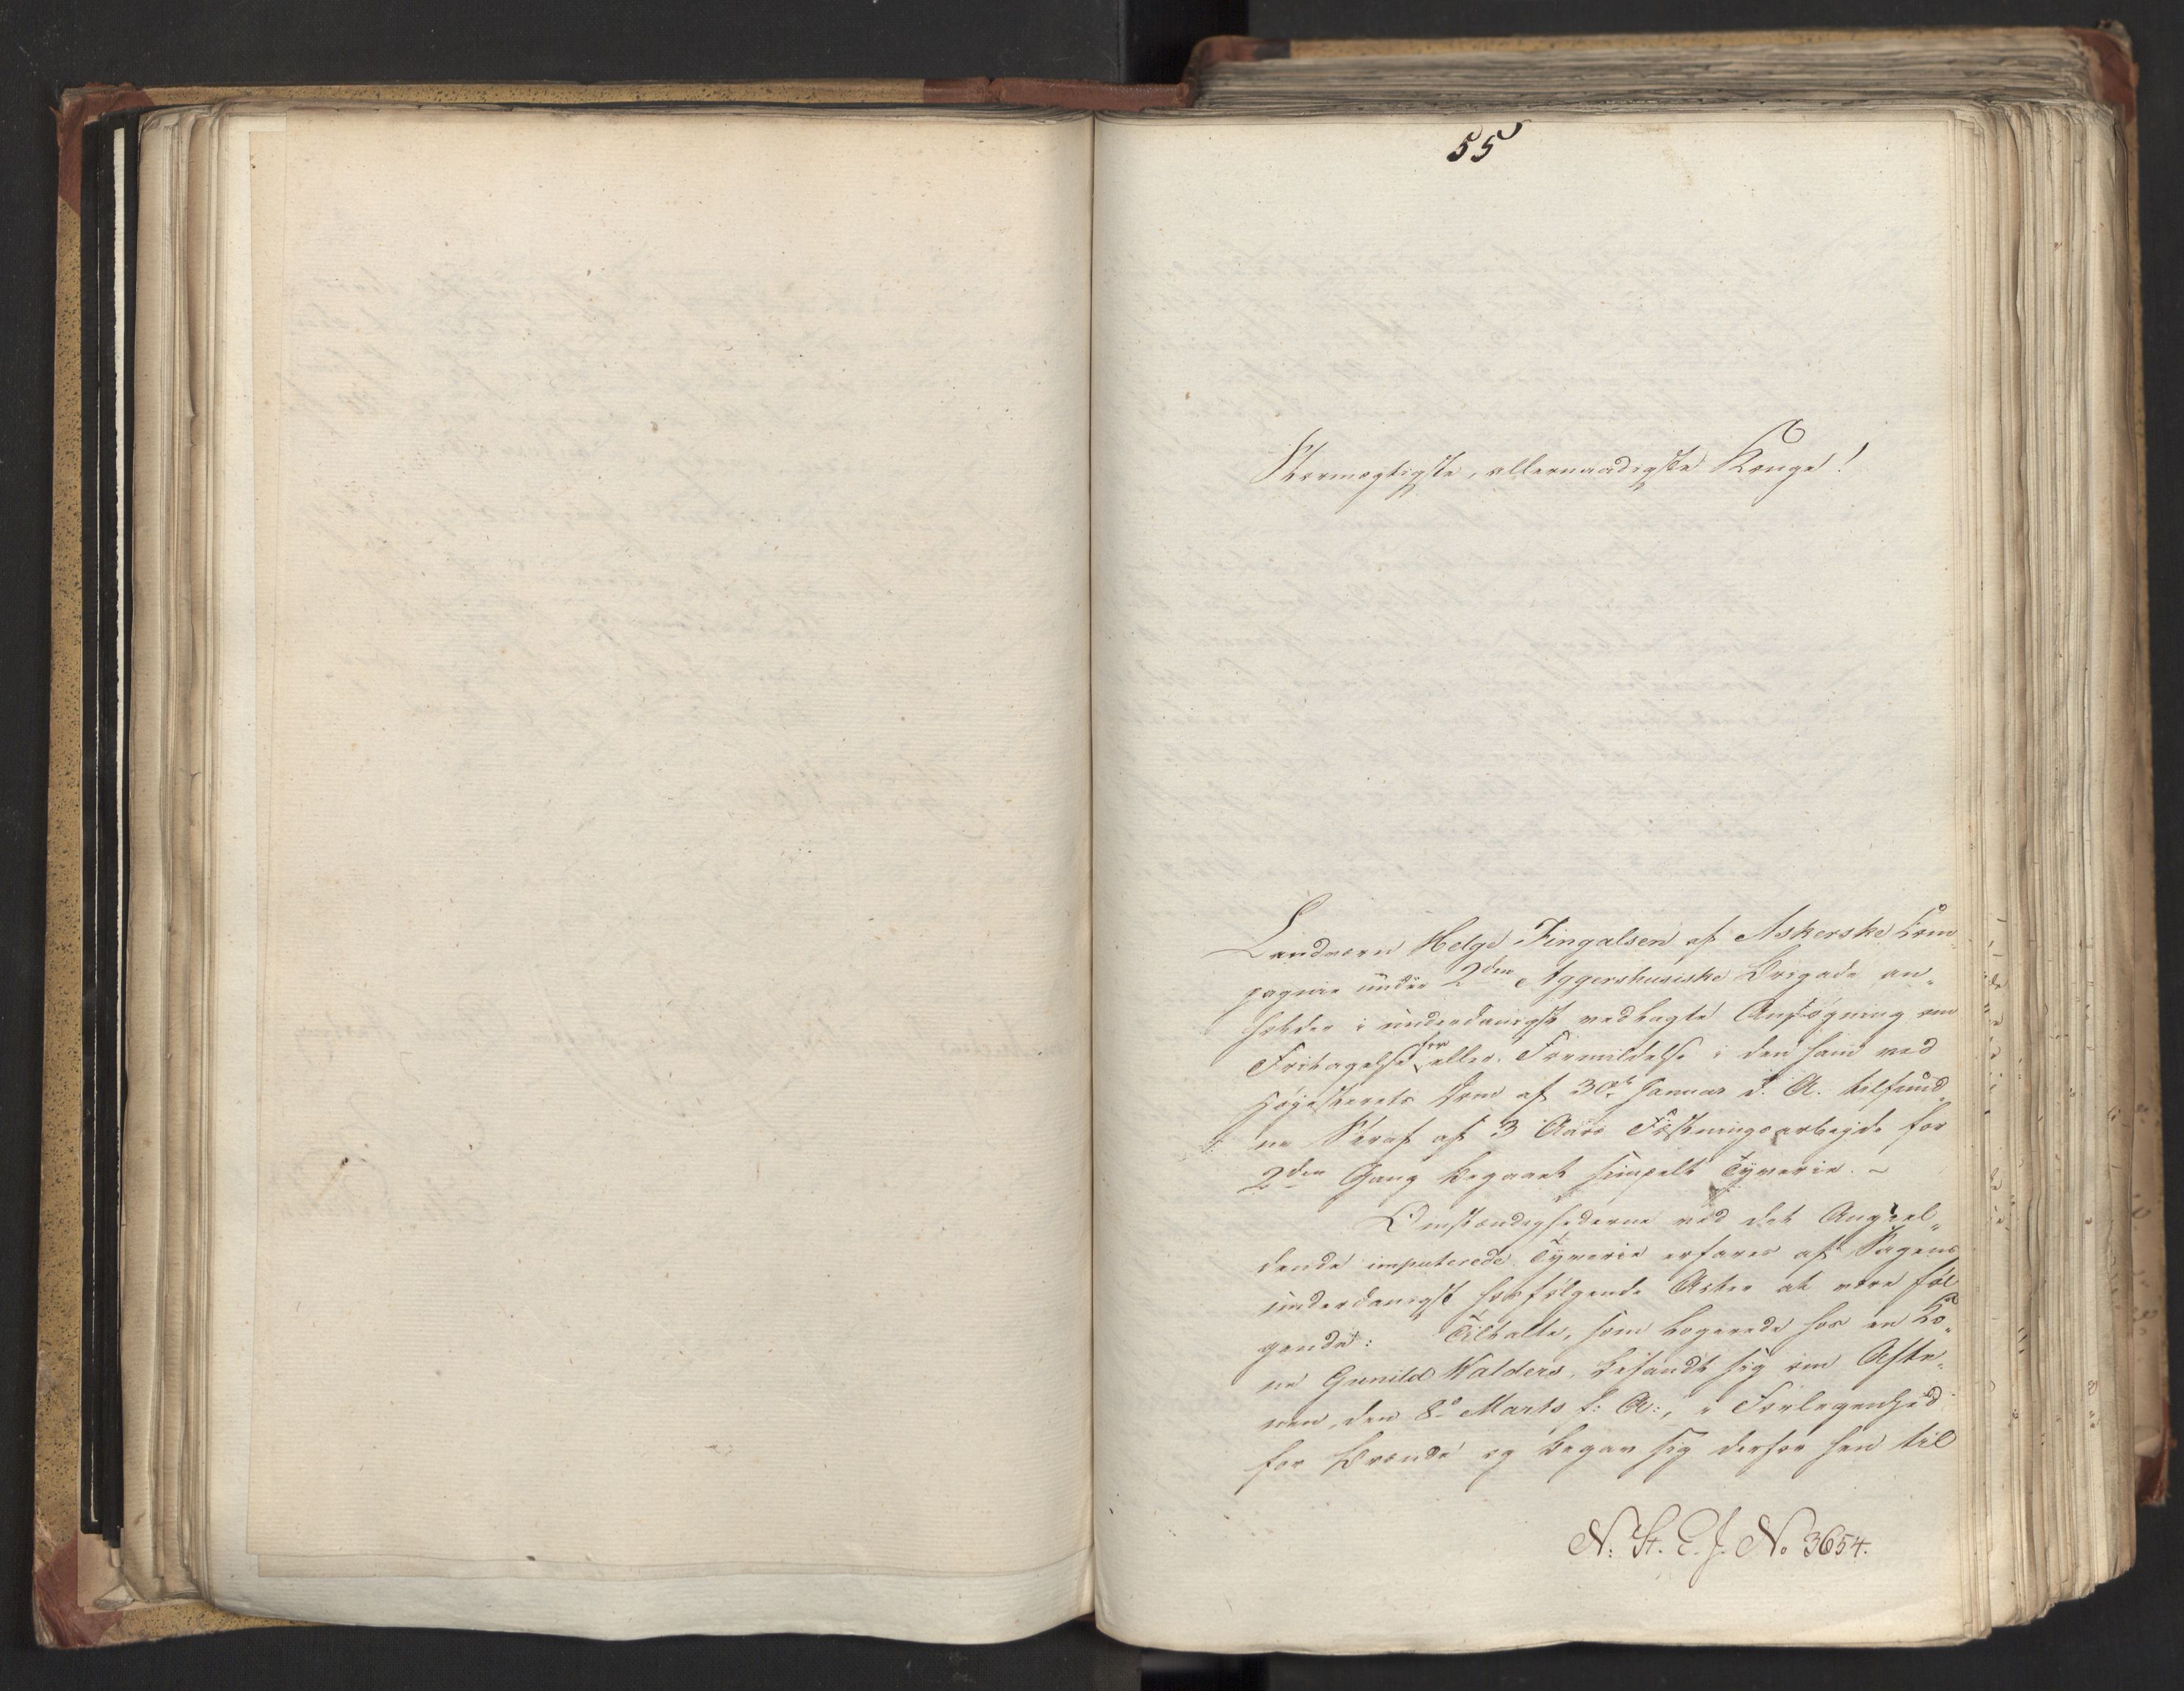 55
Stormægtigste, allernaadigste Konge!
Landværn Helge Fingalsen af Askerske Kom„
pagnie under 2den Aggershusiske Brigade an„
holder i underdanigst vedlagte Ansøgning om
Fritagelse for eller Formildelse i den ham ved
Høiesterets Dom af 30te Januar d. A. tilfund„
ne Straf af 3 Aars Fæstningsarbeyde for
2den Gang begaaet simpelt Tyverie. –
Omstændighederne ved det Angjel„
dende imputerede Tyverie erfares af Sagens
underdanigst hosfølgende Akter at være føl
gende: Tiltalte, som logerede hos en Ko„
ne Gunild Walders, befandt sig om Afte„
nen den 8de Marts f: A:, i Forlegenhed
for Brænde og begav sig derfor hen til
N: St. E. J. No 3654.